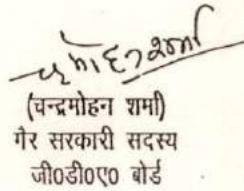 (चन्द्रमोहन शर्मा)
गैर सरकारी सदस्य
जी0डी0ए0 बोर्ड